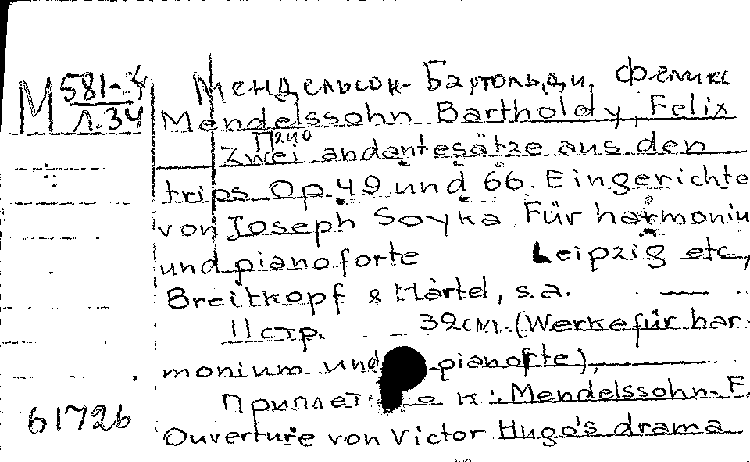 Мендельсон-Бартольди, Феликс
М 581-4
Л.34
Mendelssohn Bartholdy, Felix
Zwei andantesätze aus den
trips Op.49 und 66. Eingerichte
von Joseph Soyka Für harmoniu
und pianoforte Leipzig etc,
Breitkopf & Härtel, s.a.
11 стр. 32см. (Werke für har-
monium und pianofte),
к: Mendelssohn-F.
61726
Ouverture von Victor Hugo's drama